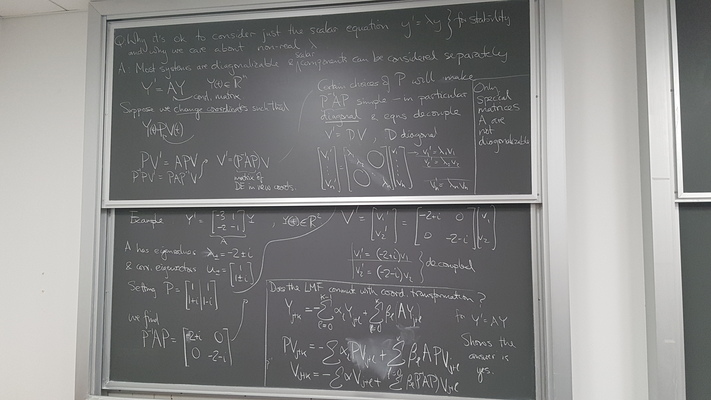 Q: Why it's ok to consider just the scalar equation y' = λy } for stability
and why we care about non-real λ
A: Most systems are diagonalizable & scalar components can be considered separately
Y' = AY Y(t) ∈ Rⁿ
const. matrix
Suppose we change coordinates such that
Y(t) = PV(t)
PV' = APV
P⁻¹PV' = P⁻¹APV
V' = (P⁻¹AP)V
matrix of
DE in new coords.
Certain choices of P will make
P⁻¹AP simple – in particular
diagonal & eqns decouple
V' = DV, D diagonal
v₁' = λ₁v₁
v₂' = λ₂v₂
vₙ' = λₙvₙ
Only
special
matrices
A are
not
diagonalizable
Example Y' = [-3 1; -2 -1] Y, Y(t) ∈ R²
A
A has eigenvalues λ± = -2±i
& corr. eigenvectors u± = [1; 1±i]
Setting P = [1 1; 1+i 1-i]
we find
P⁻¹AP = [-2+i 0; 0 -2-i]
V' = [v₁'; v₂'] = [-2+i 0; 0 -2-i] [v₁; v₂]
v₁' = (-2+i)v₁
v₂' = (-2-i)v₂
} decoupled
Does the LMF commute with coord. transformation?
for Y' = AY
Shows the
answer is
yes.